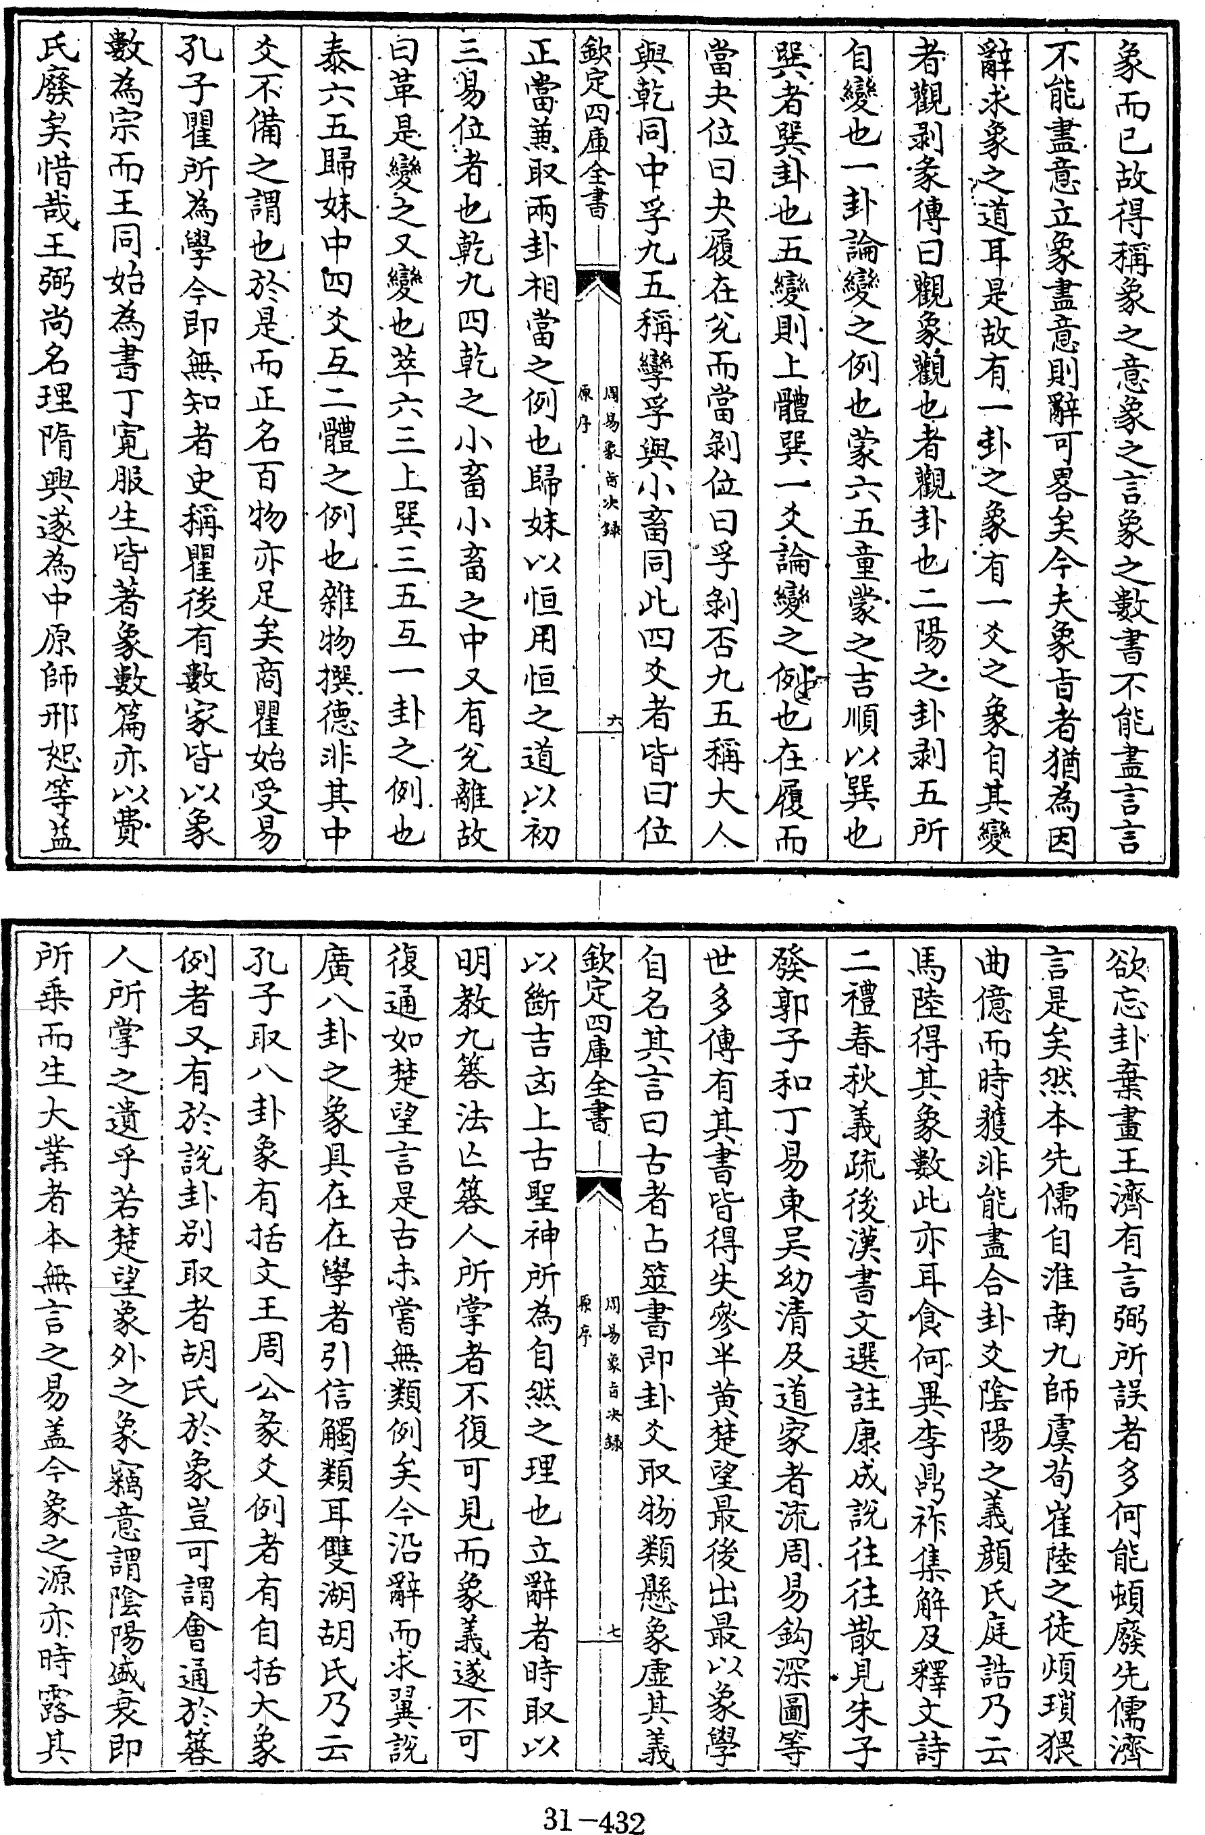 象而已故得稱象之意象之言象之數書不能盡言言
不能盡意立象盡意則辭可畧矣今夫象㫖者猶為因
辭求象之道耳是故有一卦之象有一爻之象自其變
者觀剥彖傳曰觀象觀也者觀卦也二陽之卦剥五所
自變也一卦論變之例也蒙六五童蒙之吉順以巽也
巽者巽卦也五變則上體巽一爻論變之例也在履而
當夬位曰夬履在兊而當剥位曰孚剥否九五稱大人
與乾同中孚九五稱攣孚與小畜同此四爻者皆曰位
欽定四庫全書
周易象㫖决録
原序
六
正當兼取兩卦相當之例也歸妹以恒用恒之道以初
三易位者也乾九四乾之小畜小畜之中又有兊離故
曰革是變之又變也萃六三上巽三五互一卦之例也
泰六五歸妹中四爻互二體之例也雜物撰德非其中
爻不備之謂也於是而正名百物亦足矣商瞿始受易
孔子瞿所為學今即無知者史稱瞿後有數家皆以象
數為宗而王同始為書丁寛服生皆著象數篇亦以費
氏廢矣惜哉王弼尚名理隋興遂為中原師邢恕等益
欲忘卦棄畫王濟有言弼所誤者多何能頓廢先儒濟
言是矣然本先儒自淮南九師虞荀崔陸之徒煩瑣猥
曲億而時獲非能盡合卦爻陰陽之義顔氏庭誥乃云
馬陸得其象數此亦耳食何異李鼎祚集解及釋文詩
二禮春秋義疏後漢書文選註康成說往往散見朱子
發郭子和丁易東吴幼清及道家者流周易鈎深圖等
世多傳有其書皆得失參半黄楚望最後出最以象學
自名其言曰古者占筮書即卦爻取物類懸象虚其義
欽定四庫全書
周易象㫖决録
原序
七
以斷吉凶上古聖神所為自然之理也立辭者時取以
明教九簭法亡簭人所掌者不復可見而象義遂不可
復通如楚望言是古未嘗無類例矣今沿辭而求翼說
廣八卦之象具在在學者引信觸類耳雙湖胡氏乃云
孔子取八卦象有括文王周公彖爻例者有自括大象
例者又有於說卦别取者胡氏於象豈可謂㑹通於簭
人所掌之遺乎若楚望象外之象竊意謂陰陽盛衰即
所乗而生大業者本無言之易盖今象之源亦時露其
31-432